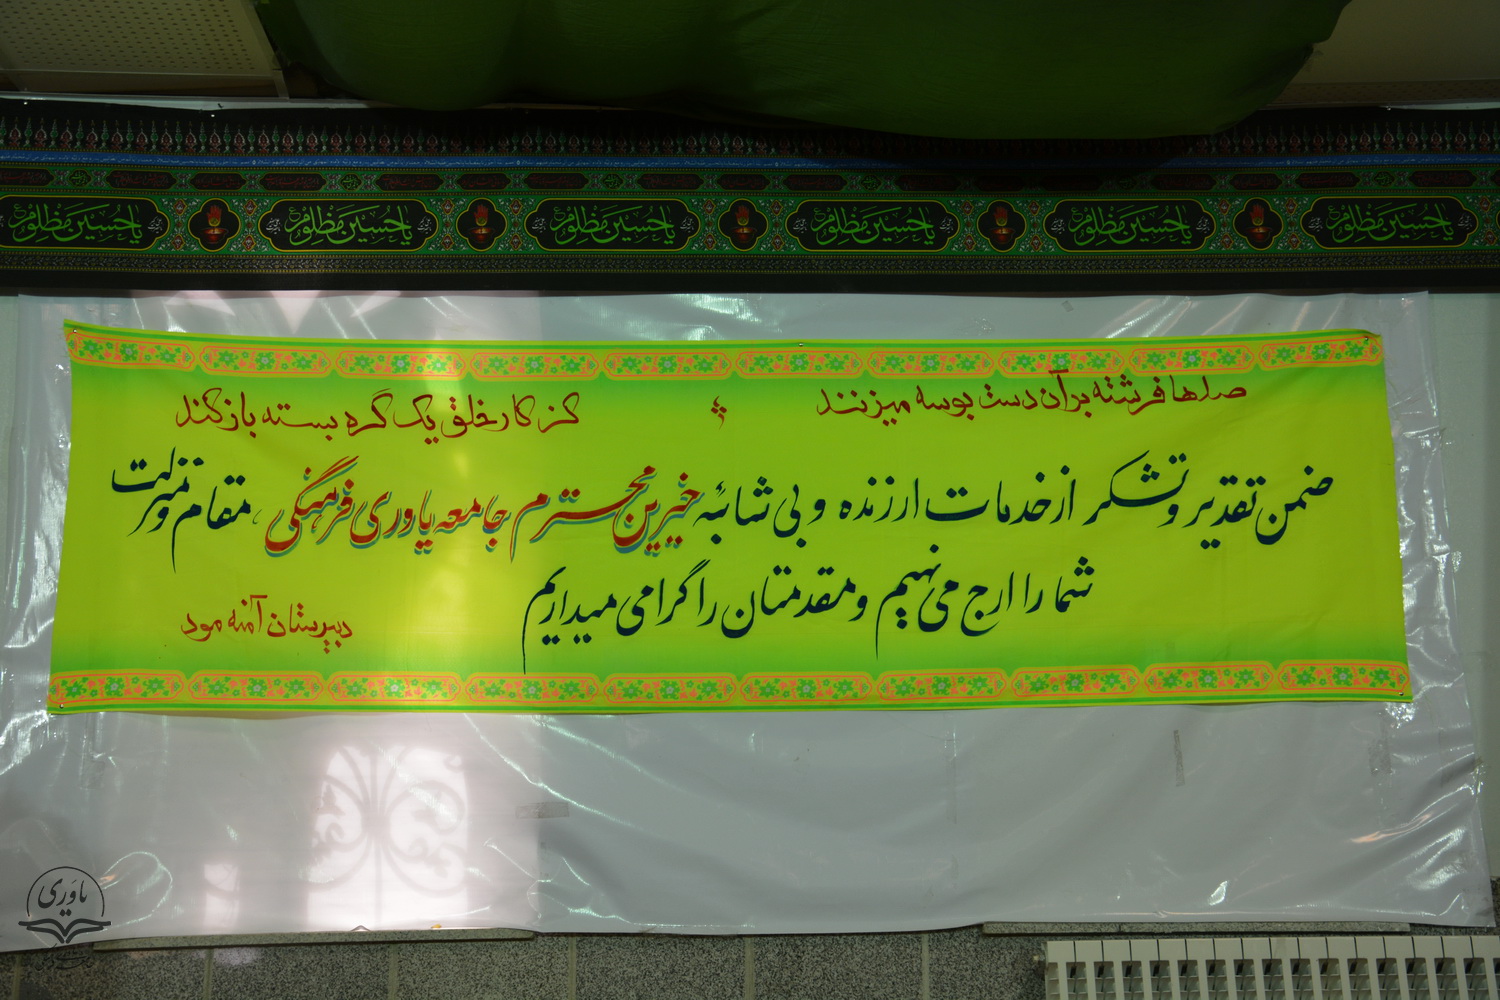 یا حسین مظلوم یا حسین مظلوم یا حسین مظلوم یا حسین مظلوم یا حسین مظلوم یا حسین مظلوم
صدها فرشته بر آن دست بوسه میزنند
کز کار خلق یک گره بسته باز کند
ضمن تقدیر و تشکر از خدمات ارزنده و بی شائبه خیرین محترم جامعه یاوری فرهنگی، مقام و منزلت
شما را ارج می نهیم و مقدمتان را گرامی میداریم
دبیرستان آمنه مود
یاوری